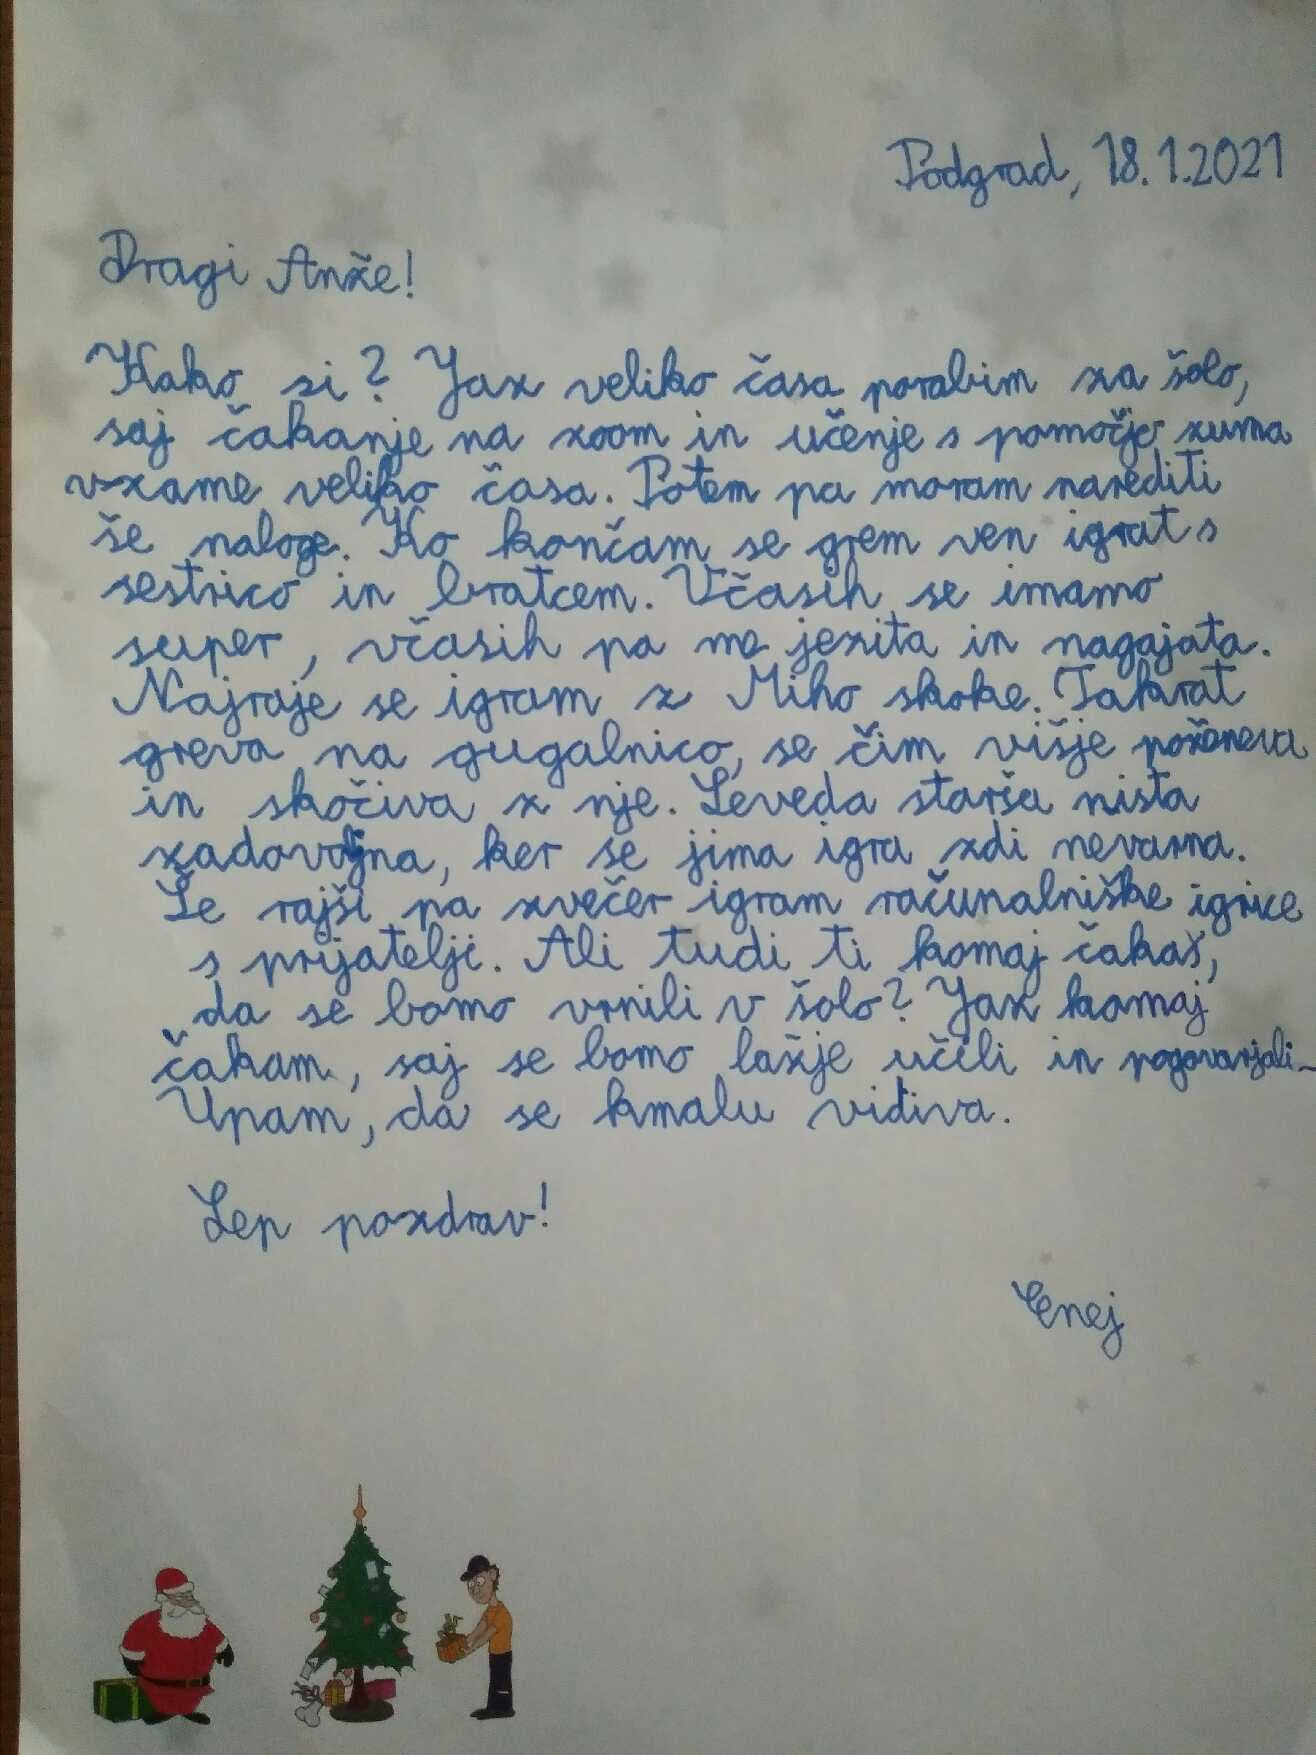 Podgrad, 18.1.2021
Dragi Anže!
Kako si? Jaz veliko časa porabim za šolo,
saj čakanje na zoom in učenje s pomočjo zuma
vzame veliko časa. Potem pa moram narediti
še naloge. Ko končam se grem ven igrat s
sestrico in bratcem. Včasih se imamo
super, včasih pa me jezita in nagajata.
Najraje se igram z Miho skoke. Takrat
greva na gugalnico, se čim višje poženeva
in skočiva z nje. Seveda starša nista
zadovoljna, ker se jima igra zdi nevarna.
Še rajši pa zvečer igram računalniške igrice
s prijatelji. Ali tudi ti komaj čakaš,
da se bomo vrnili v šolo? Jaz komaj
čakam, saj se bomo lažje učili in pogovarjali.
Upam, da se kmalu vidiva.
Lep pozdrav!
Enej